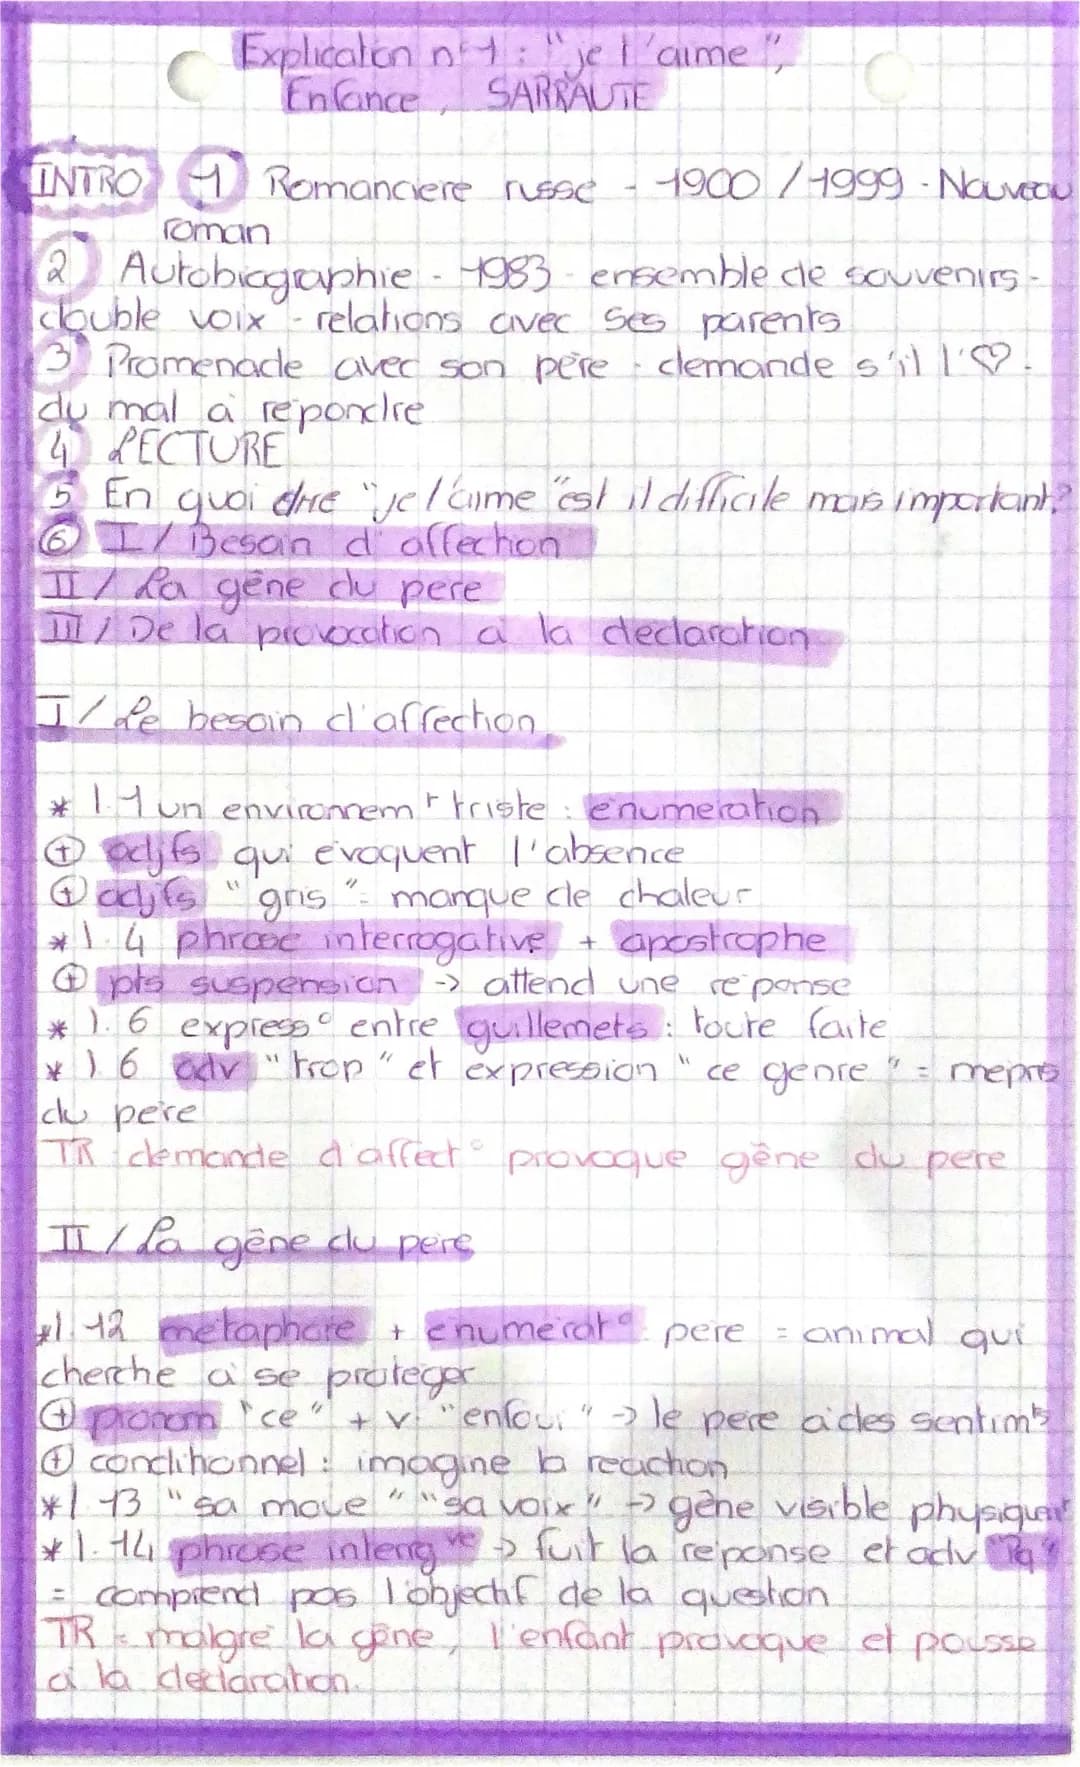 Explication n°1 : "je t'aime",
Enfance, SARRAUTE
INTRO 1 Romanciere russe - 1900 / 1999 - Nouveau
roman
2 Autobiographie - 1983 - ensemble de souvenirs -
double voix - relations avec ses parents
3 Promenade avec son père - demande s'il l'♡.
du mal à répondre
4 LECTURE
5 En quoi dire "je t'aime" est il difficile mais important?
6 I / Besoin d'affection
II / La gêne du père
III / De la provocation à la déclaration
I / Le besoin d'affection
* l.1 un environnemt triste : énumération
⊕ adjfs qui évoquent l'absence
⊕ adjfs "gris" = manque de chaleur
* l.4 phrase interrogative + apostrophe
⊕ pts suspension -> attend une réponse
* l.6 express° entre guillemets : toute faite
* l.6 adv "trop" et expression "ce genre" = mépris
du père
TR : demande d'affect° provoque gêne du père
II / La gêne du père
* l.12 métaphore + énumérat° : père = animal qui
cherche à se protéger
⊕ pronom "ce" + v. "enfoui" -> le père a des sentimts
⊕ conditionnel : imagine la réaction
* l.13 "sa moue" "sa voix" -> gêne visible physiquemt
* l.14 phrase interrogve -> fuit la réponse et adv "Pq"
= comprend pas l'objectif de la question
TR : malgré la gêne, l'enfant provoque et pousse
à la déclaration.